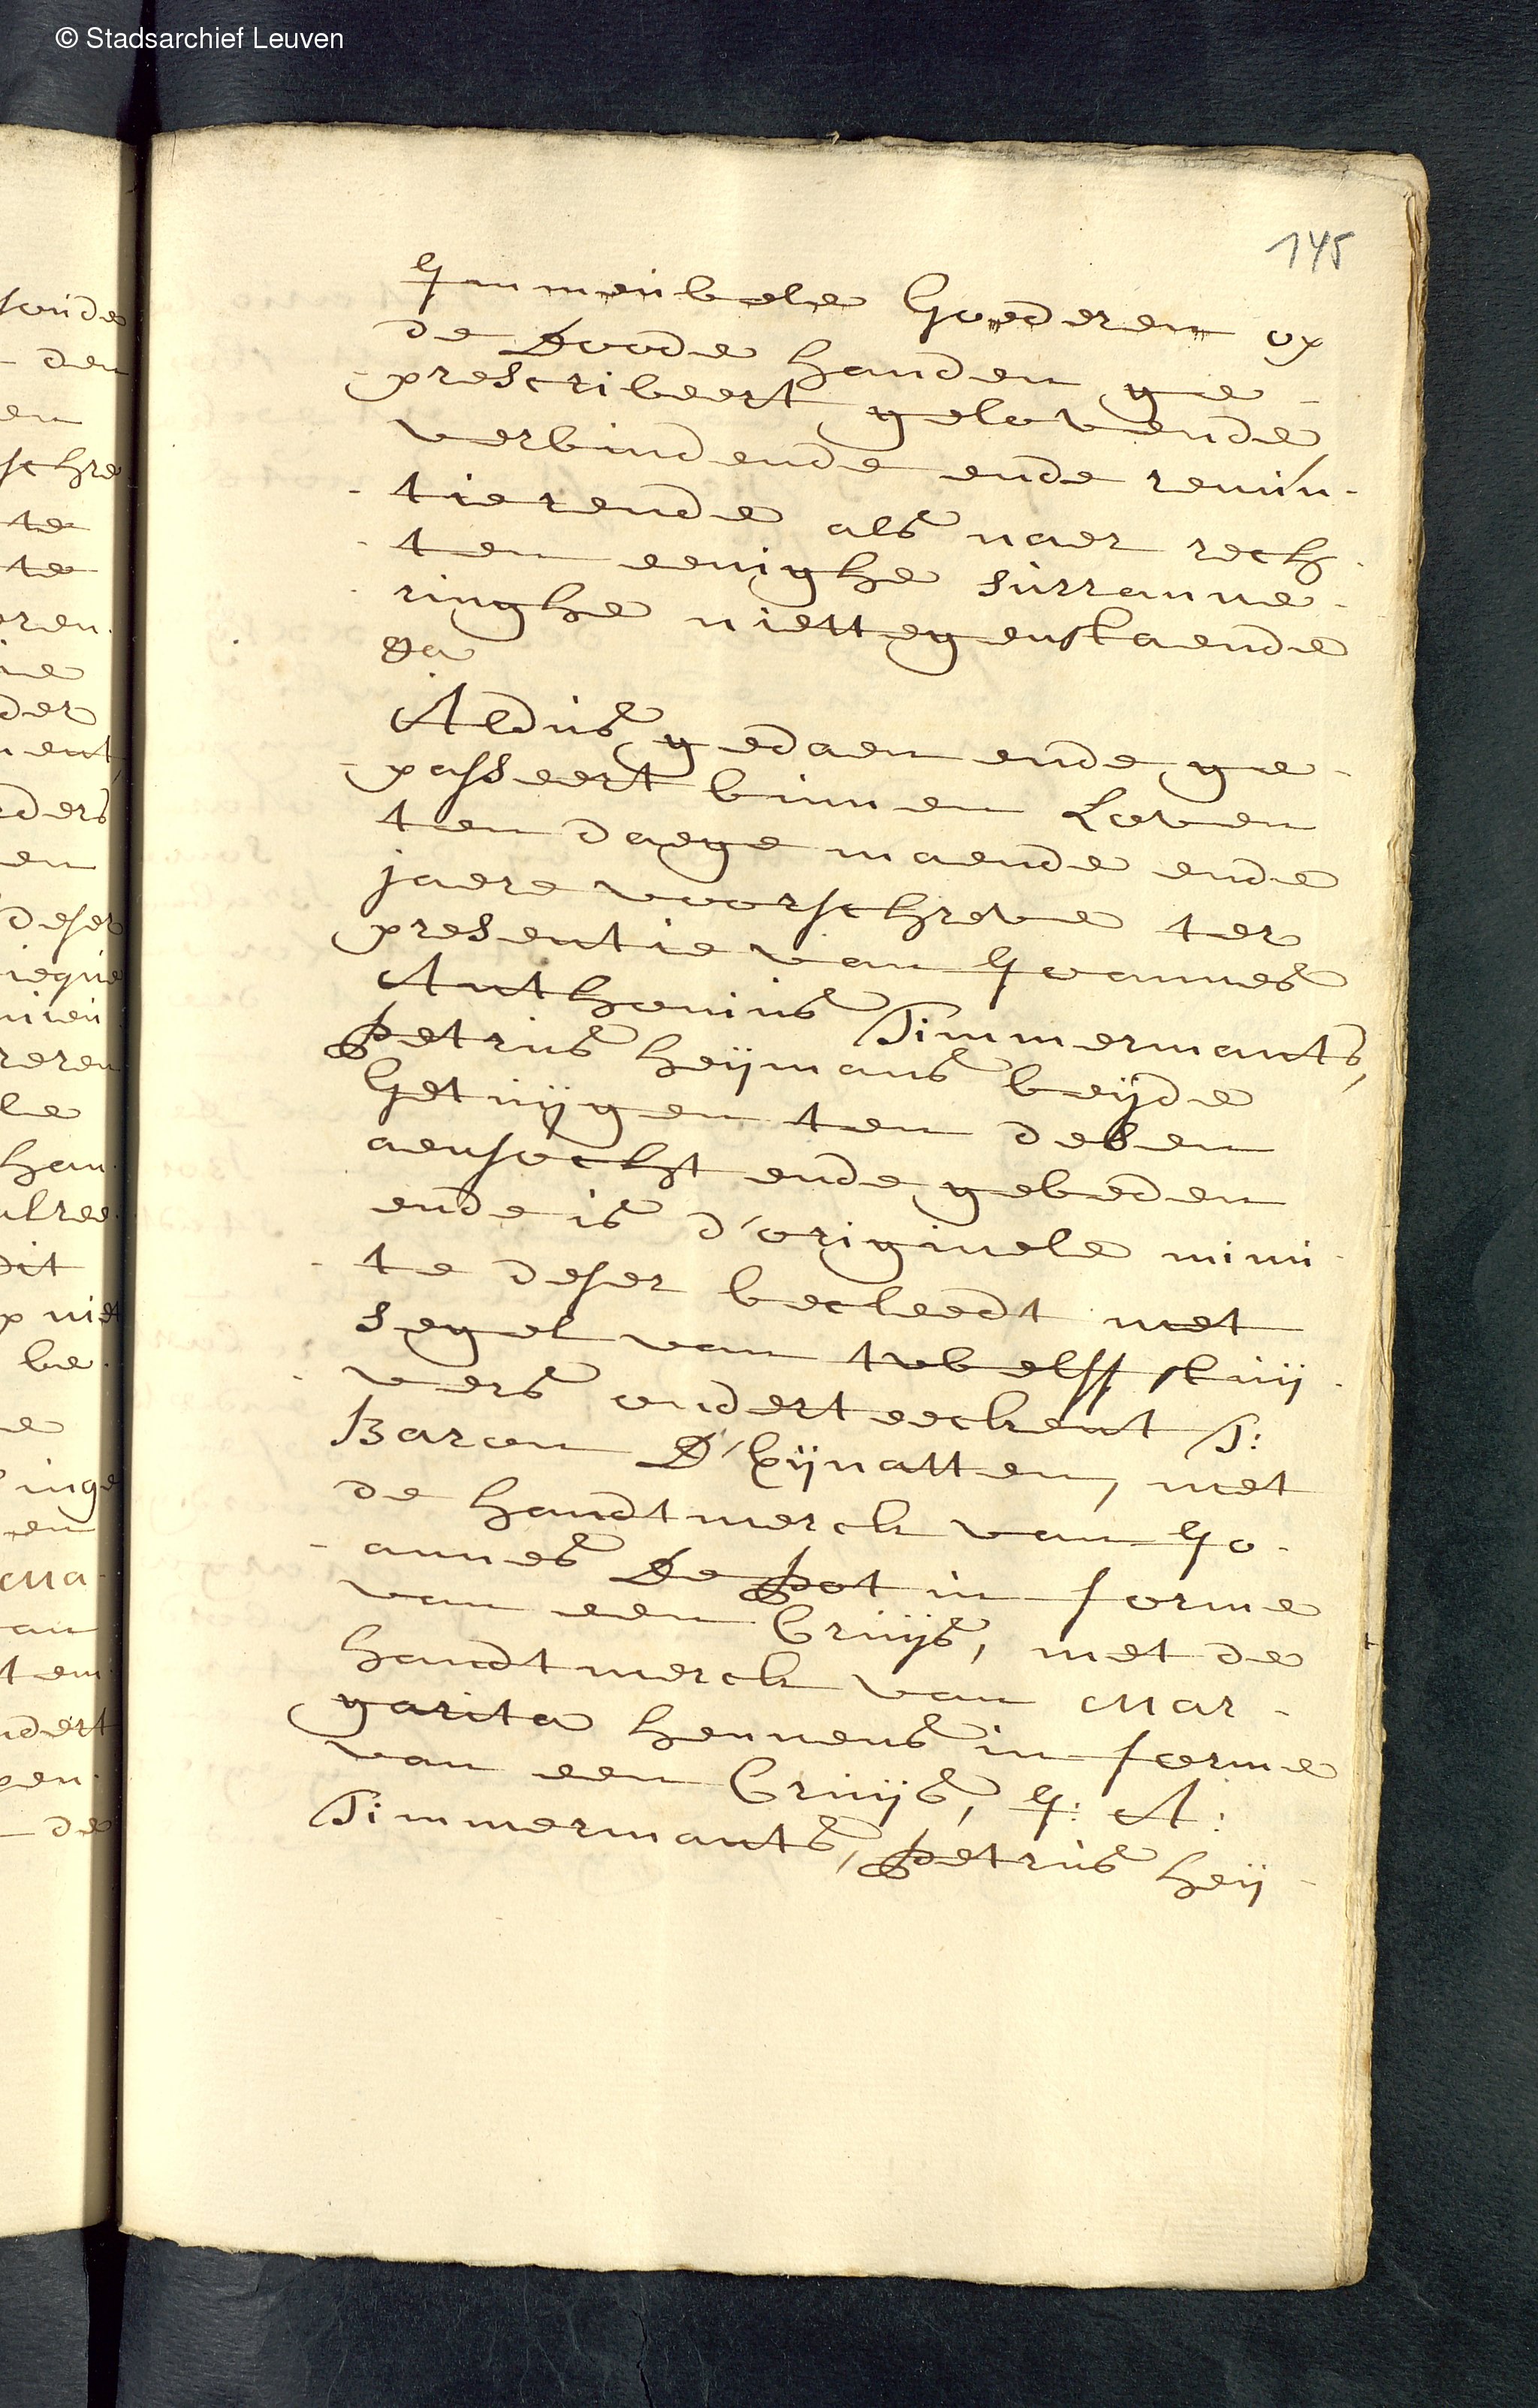 © Stadsarchief Leuven
145
Immeubele Goederen op
de Doode handen ge-
prescribeert, gelovende,
verbindende ende renun-
tierende als naer rech-
ten eenighe surranne-
ringhe niettegenstaende
Aldus gedaen ende ge-
passeert binnen Loven
ten daege maende ende
jaere voorschreve ter
presentie van Joannes
Anthonius Timmermants,
Petrus heijmans beijde
Getuijgen ten desen
aensocht ende gebeden
ende is d'originele minu-
te deser becleedt met
segel van twelff stuij-
vers onderteeckent T:
Baron D'Eijnatten, met
de handtmerck van Jo-
annes De Pot in forme
van een Cruijs, met de
handtmerck van Mar-
garita hennens in forme
van een Cruijs, J: A:
Timmermants, Petrus heij-